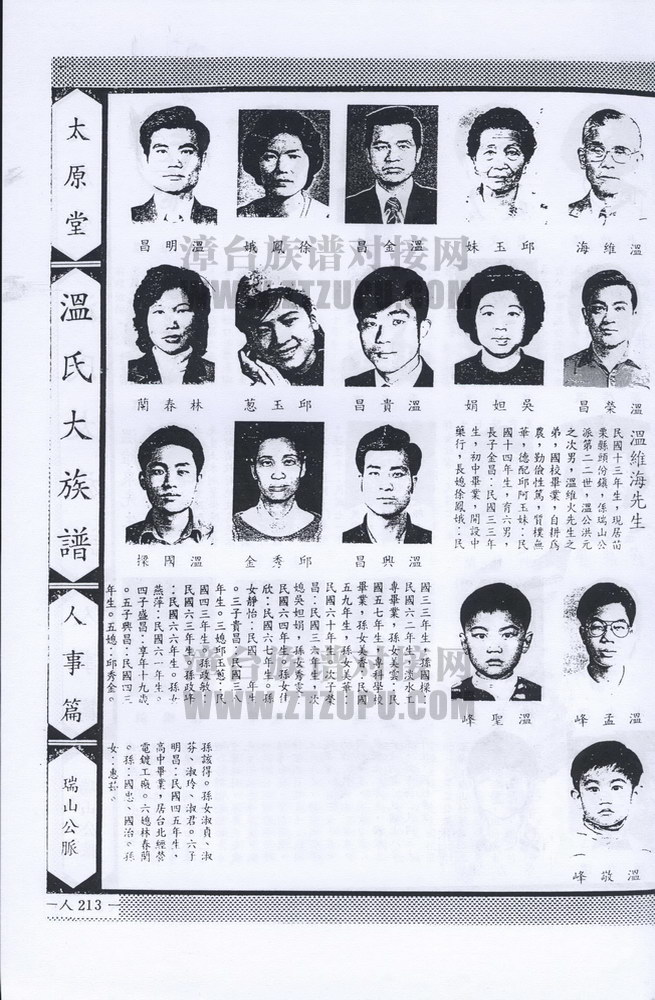 太原堂
溫氏大族譜
人事篇
瑞山公脈
海維溫
妹玉邱
昌金溫
娥鳳徐
昌明溫
昌榮溫
娟妲吳
昌貴溫
蔥玉邱
蘭春林
溫維海先生
民國十三年生,現居苗
栗縣頭份鎮,係瑞山公
派第二二世,溫公洪元
之次男,溫維火先生之
弟,國校畢業,自耕為
農,勤儉性篤,質樸無
華,德配邱阿玉妹:民
國十四年生,育六男,
長子金昌:民國三三年
生,初中畢業,開設中
藥行,長媳徐鳳娥:民
昌興溫
金秀邱
樑國溫
峰孟溫
峰聖溫
峰敬溫
國三三年生。孫國樑:
民國六二年生,淡水工
專畢業,孫女美雲:民
國五七年生,專科學校
畢業,孫女美香:民國
五九年生,孫女美華:
民國六十年生,次子榮
昌:民國三六年生,次
媳吳妲娟,孫女秀雯:
民國六四年生,孫女仕
欣:民國六七年生。孫
女靜怡:民國 年生
。三子貴昌:民國三 
年生。三媳邱玉蔥:民
國四三年生。孫政敏:
民國六三年生。孫政峰
:民國六六年生。孫女
燕萍:民國六一年生。
四子盛昌:享年十九歲
。五子興昌:民國四三
年生。五媳:邱秀金。
孫該得。孫女淑貞、淑
芬、淑玲、淑君。六子
明昌:民國四五年生,
高中畢業,居台北經營
電鍍工廠。六媳林春蘭
。孫:國忠、國治。孫
女:惠 。
人213
漳台族谱对接网
WWW.ZTZUPU.COM
漳台族谱对接网
WWW.ZTZUPU.COM